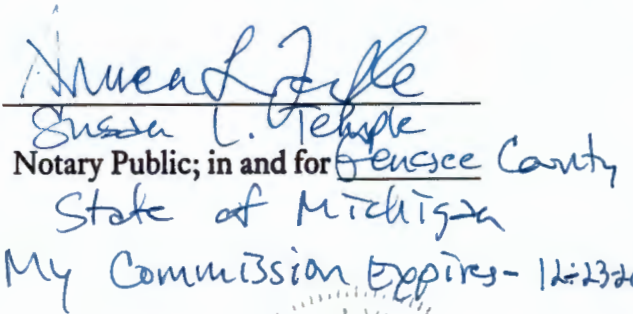 Susan L. Temple
Notary Public; in and for Genesee County
State of Michigan
My Commission Expires-